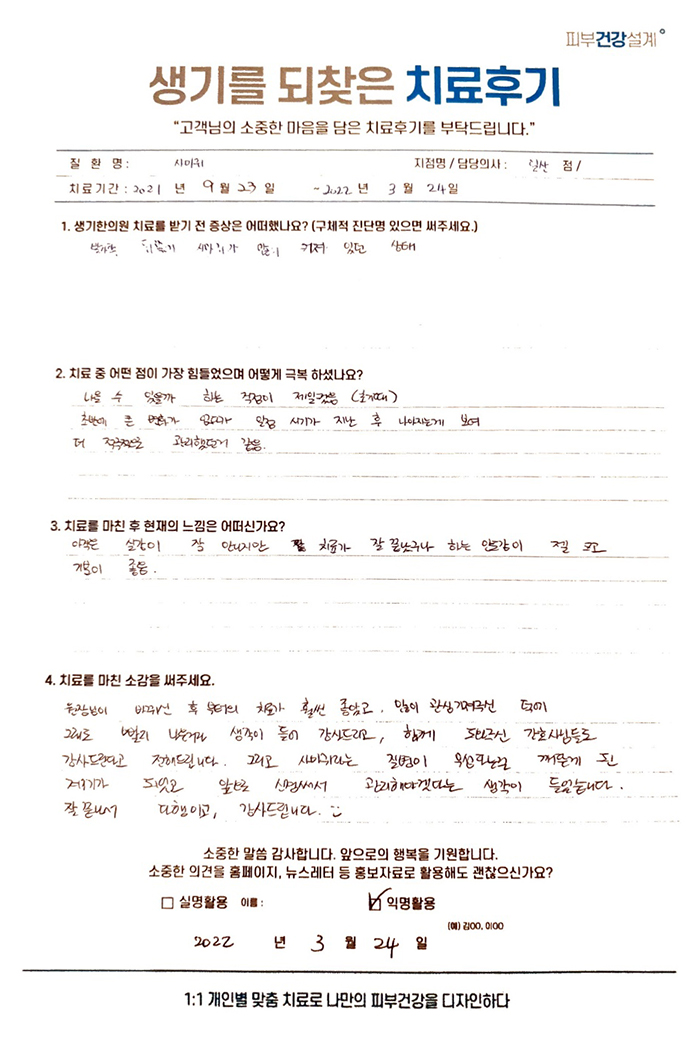 피부건강설계
생기를 되찾은 치료후기
"고객님의 소중한 마음을 담은 치료후기를 부탁드립니다."
질 환 명 : 사마귀 지점명 / 담당의사 : 일산 점 /
치료기간 : 2021 년 9 월 23 일 ~2022 년 3 월 24일
1. 생기한의원 치료를 받기 전 증상은 어떠했나요? (구체적 진단명 있으면 써주세요.)
사마귀가 많이 퍼져 있던 상태
2. 치료 중 어떤 점이 가장 힘들었으며 어떻게 극복 하셨나요?
나을 수 있을까 하는 걱정이 제일컸음 (초기때)
초반에 큰 변화가 없다가 일정 시기가 지난 후 나아지는게 보여
더 적극적으로 관리했던거 같음.
3. 치료를 마친 후 현재의 느낌은 어떠신가요?
아직은 실감이 잘 안나지만 치료가 잘 끝났구나 하는 안도감이 젤 크고
기분이 좋음.
4. 치료를 마친 소감을 써주세요.
원장님이 바뀌신 후 부터의 치료가 훨씬 좋았고, 많이 관심가져주신 덕에
그래도 빨리 나은거라 생각이 들어 감사드리고, 함께 도와주신 간호사님들도
감사드린다고 전해드립니다. 그리고 사마귀라는 질병이 무섭다는걸 깨닫게 된
계기가 되었고 앞으로 신경써서 관리해야겠다는 생각이 들었습니다.
잘 끝나서 다행이고, 감사드립니다.
소중한 말씀 감사합니다. 앞으로의 행복을 기원합니다.
소중한 의견을 홈페이지, 뉴스레터 등 홍보자료로 활용해도 괜찮으신가요?
실명활용 이름 : 익명활용
(예) 김OO, 이OO
2022 년 3 월 24 일
1:1 개인별 맞춤 치료로 나만의 피부건강을 디자인하다